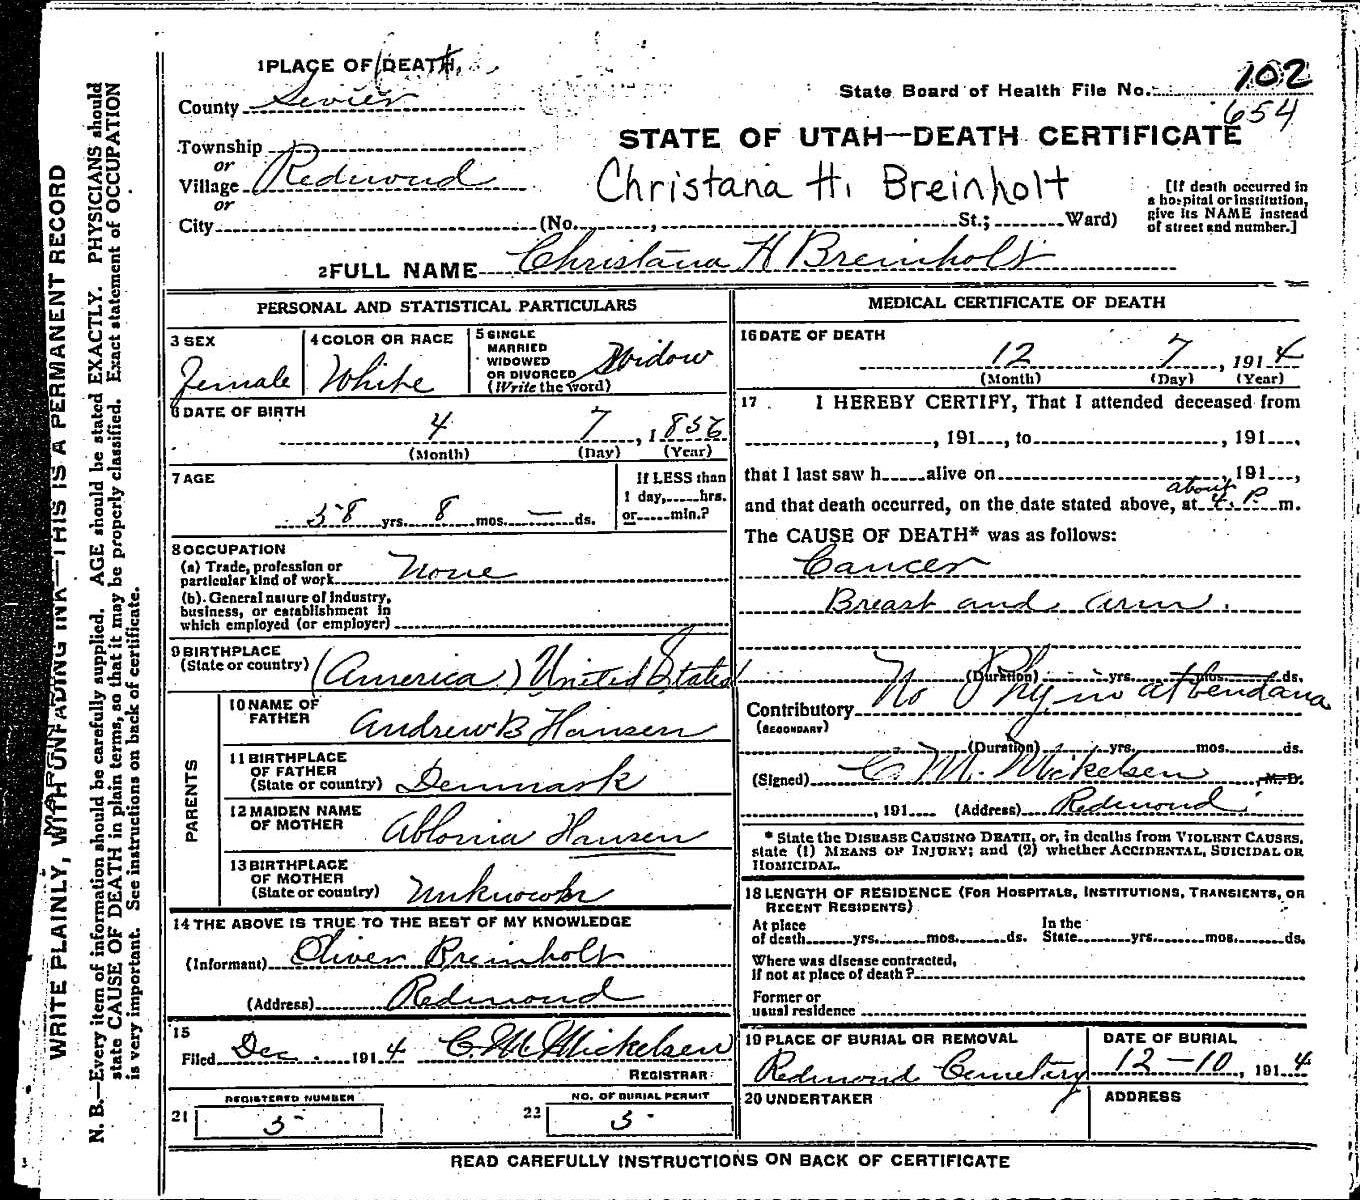 1 PLACE OF DEATH
County Sevier
Township
or
Village Redmond
or
City (No. , St.; Ward)
State Board of Health File No. 102
654
STATE OF UTAH—DEATH CERTIFICATE
Christana H. Breinholt
[If death occurred in
a hospital or institution,
give its NAME instead
of street and number.]
2 FULL NAME Christana H Breinholt
PERSONAL AND STATISTICAL PARTICULARS
3 SEX
Female
4 COLOR OR RACE
White
5 SINGLE
MARRIED
WIDOWED
OR DIVORCED
(Write the word)
Widow
6 DATE OF BIRTH
4 7, 1856
(Month) (Day) (Year)
7 AGE
58 yrs. 8 mos. — ds.
If LESS than
1 day, hrs.
or min.?
8 OCCUPATION
(a) Trade, profession or
particular kind of work None
(b) General nature of industry,
business, or establishment in
which employed (or employer)
9 BIRTHPLACE
(State or country) (America) United States
PARENTS
10 NAME OF
FATHER Andrew B Hansen
11 BIRTHPLACE
OF FATHER
(State or country) Denmark
12 MAIDEN NAME
OF MOTHER Ablonia Hansen
13 BIRTHPLACE
OF MOTHER
(State or country) Unknown
14 THE ABOVE IS TRUE TO THE BEST OF MY KNOWLEDGE
(Informant) Oliver Breinholt
(Address) Redmond
15
Filed Dec. 1914 C. M. Mickelsen
REGISTRAR
21 REGISTERED NUMBER
5
22 NO. OF BURIAL PERMIT
5
MEDICAL CERTIFICATE OF DEATH
16 DATE OF DEATH
12 7, 1914
(Month) (Day) (Year)
17 I HEREBY CERTIFY, That I attended deceased from
, 191 , to , 191 ,
that I last saw h alive on , 191 ,
about
and that death occurred, on the date stated above, at 4. P. m.
The CAUSE OF DEATH* was as follows:
Cancer
Breast and arm.
(Duration) yrs. mos. ds.
No Phy in attendana
Contributory
(SECONDARY)
(Duration) yrs. mos. ds.
(Signed) C. M. Mickelsen M. D.
, 191 (Address) Redmond
* State the DISEASE CAUSING DEATH, or, in deaths from VIOLENT CAUSES,
state (1) MEANS OF INJURY; and (2) whether ACCIDENTAL, SUICIDAL OR
HOMICIDAL.
18 LENGTH OF RESIDENCE (FOR HOSPITALS, INSTITUTIONS, TRANSIENTS, OR
RECENT RESIDENTS)
At place
of death yrs. mos. ds.
In the
State yrs. mos. ds.
Where was disease contracted,
if not at place of death?
Former or
usual residence
19 PLACE OF BURIAL OR REMOVAL
Redmond Cemetery
DATE OF BURIAL
12—10, 1914
20 UNDERTAKER
ADDRESS
READ CAREFULLY INSTRUCTIONS ON BACK OF CERTIFICATE
WRITE PLAINLY, WITH UNFADING INK—THIS IS A PERMANENT RECORD
N. B.—Every item of information should be carefully supplied. AGE should be stated EXACTLY. PHYSICIANS should
state CAUSE OF DEATH in plain terms, so that it may be properly classified. Exact statement of OCCUPATION
is very important. See instructions on back of certificate.